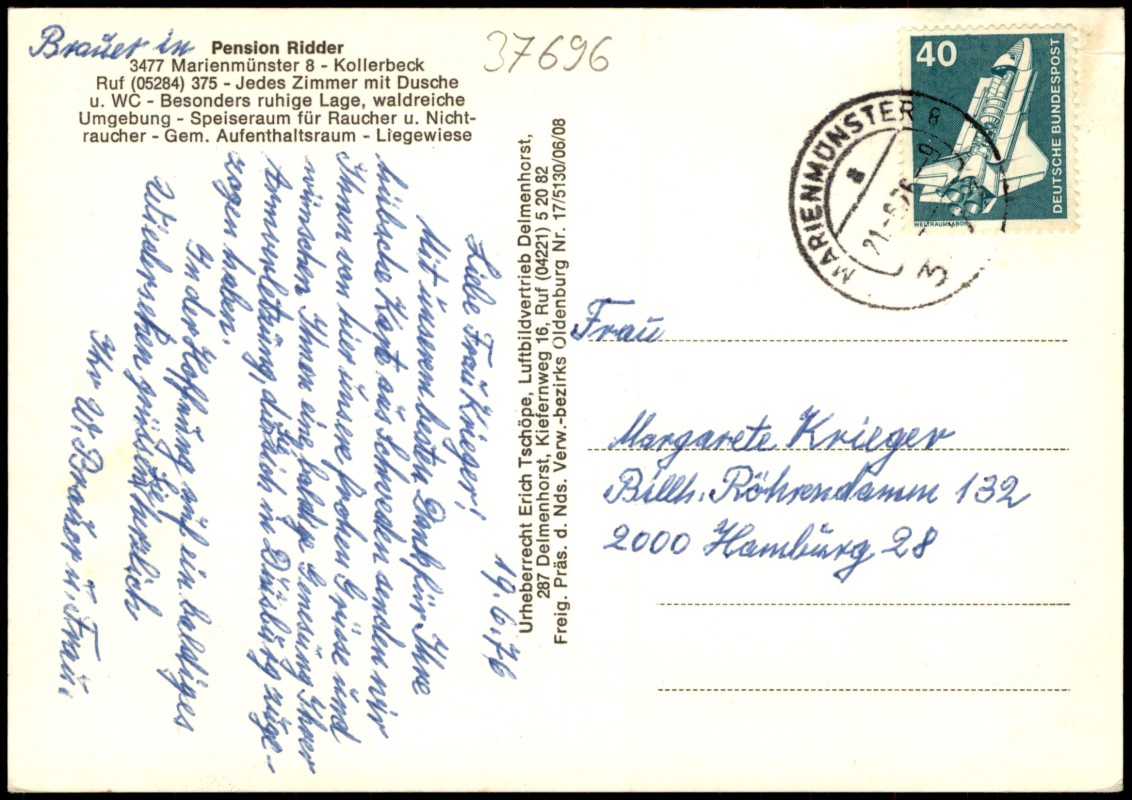 Brauer in Pension Ridder
3477 Marienmünster 8 - Kollerbeck
Ruf (05284) 375 - Jedes Zimmer mit Dusche
u. WC - Besonders ruhige Lage, waldreiche
Umgebung - Speiseraum für Raucher u. Nicht-
raucher - Gem. Aufenthaltsraum - Liegewiese
37696
19.6.76
Liebe Frau Krieger!
Mit unserem besten Dank für Ihre
hübsche Karte aus Schweden senden wir
Ihnen von hier unsere frohen Grüsse und
wünschen Ihnen eine baldige Genesung Ihrer
Armverletzung, die Sie sich in Duisburg zuge-
zogen haben.
In der Hoffnung auf ein baldiges
Wiedersehen grüssen Sie herzlich
Ihr W. Brauer u. Frau.
Urheberrecht Erich Tschöpe, Luftbildvertrieb Delmenhorst,
287 Delmenhorst, Kiefernweg 16, Ruf (04221) 5 20 82
Freig. Präs. d. Nds. Verw.-bezirks Oldenburg Nr. 17/5130/06/08
40
DEUTSCHE BUNDESPOST
WELTRAUMLABOR
MARIENMÜNSTER 8
a
Frau
Margarete Krieger
Billh. Röhrendamm 132
2000 Hamburg 28